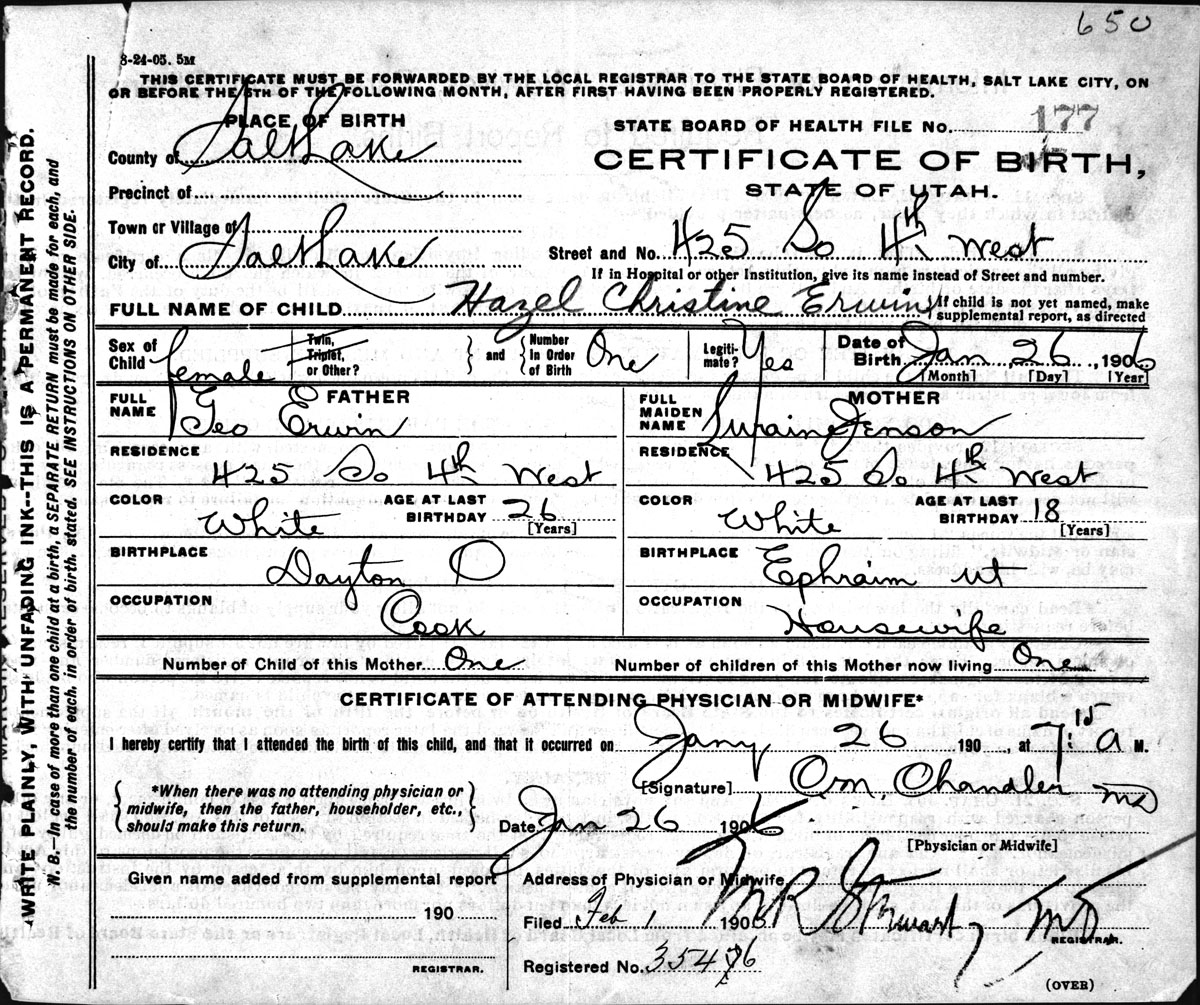 650
8-24-05. 5M
THIS CERTIFICATE MUST BE FORWARDED BY THE LOCAL REGISTRAR TO THE STATE BOARD OF HEALTH, SALT LAKE CITY, ON
OR BEFORE THE 5TH OF THE FOLLOWING MONTH, AFTER FIRST HAVING BEEN PROPERLY REGISTERED.
PLACE OF BIRTH
County of Salt Lake
Precinct of
Town or Village of
City of Salt Lake
STATE BOARD OF HEALTH FILE No. 177
CERTIFICATE OF BIRTH,
STATE OF UTAH.
Street and No. 425 So 4th West
If in Hospital or other Institution, give its name instead of Street and number.
FULL NAME OF CHILD Hazel Christine Erwin { If child is not yet named, make
supplemental report, as directed
Sex of Child female
Twin, Triplet, or Other? } and { Number In Order of Birth One
Legiti-mate? Yes
Date of Birth Jan 26, 1906
[Month] [Day] [Year]
FATHER
FULL NAME Geo Erwin
RESIDENCE
425 So 4th West
COLOR White AGE AT LAST BIRTHDAY 26 [Years]
BIRTHPLACE
Dayton O
OCCUPATION
Cook
MOTHER
FULL MAIDEN NAME Jenson
RESIDENCE
425 So 4th West
COLOR White AGE AT LAST BIRTHDAY 18 [Years]
BIRTHPLACE
Ephraim Ut
OCCUPATION
Housewife
Number of Child of this Mother One Number of children of this Mother now living One
CERTIFICATE OF ATTENDING PHYSICIAN OR MIDWIFE*
I hereby certify that I attended the birth of this child, and that it occurred on Jany 26 190 , at 7:15 A M.
{ *When there was no attending physician or
midwife, then the father, householder, etc.,
should make this return. }
[Signature] Chandler MD
Date Jan 26 1906
[Physician or Midwife]
Given name added from supplemental report
190
REGISTRAR.
Address of Physician or Midwife
Filed Feb 1 1906 M R Stewart, MD
REGISTRAR.
Registered No.
(OVER)
WRITE PLAINLY, WITH UNFADING INK--THIS IS A PERMANENT RECORD.
N. B.—In case of more than one child at a birth, a SEPARATE RETURN must be made for each, and
the number of each, in order of birth, stated. SEE INSTRUCTIONS ON OTHER SIDE.